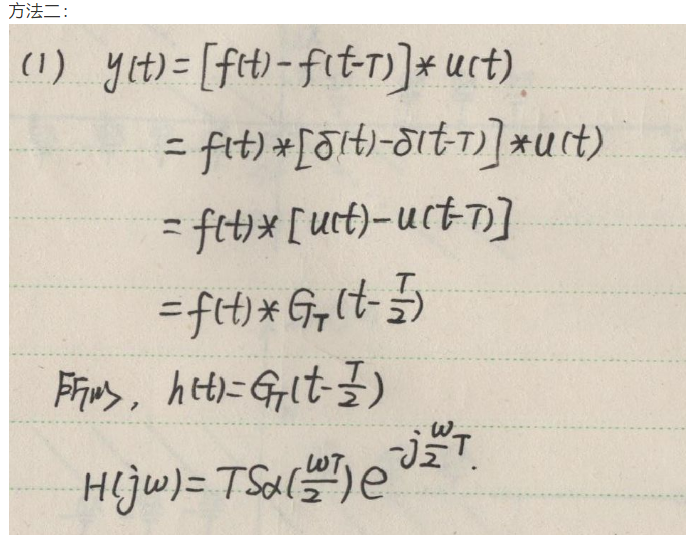 方法二：
(1) y(t)=[f(t)-f(t-T)]*u(t)
=f(t)*[δ(t)-δ(t-T)]*u(t)
=f(t)*[u(t)-u(t-T)]
=f(t)*G_T(t-T/2)
所以, h(t)=G_T(t-T/2)
H(jω)=TSa(ωT/2)e^{-jω/2 T}.